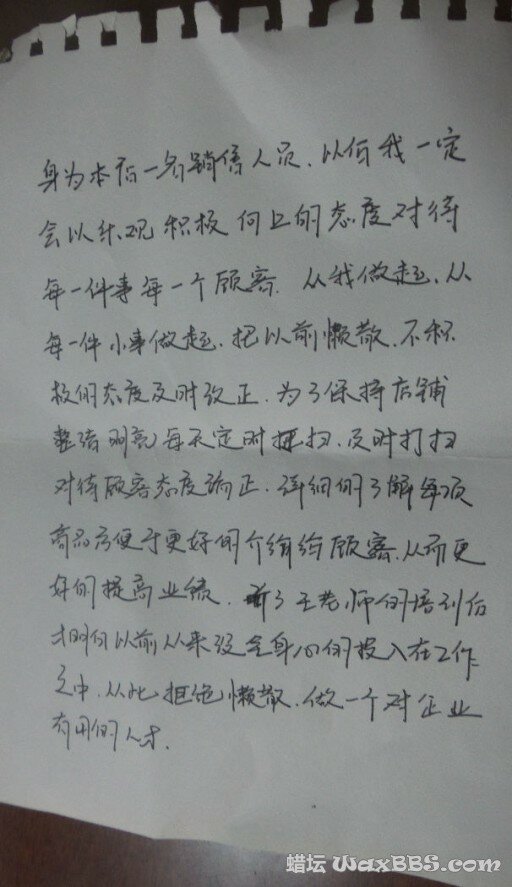 身为本店一名销售人员、以后我一定
会以乐观积极向上的态度对待
每一件事每一个顾客. 从我做起、从
每一件小事做起、把以前懒散、不积
极的态度及时改正. 为了保持店铺
整洁明亮每天定时打扫、及时打扫
对待顾客态度端正. 详细的了解每项
商品方便于更好的介绍给顾客、从而更
好的提高业绩. 听了王老师的培训后
才明白以前从来没全身心的投入在工作
之中、从此拒绝懒散、做一个对企业
有用的人才.
蜡坛 WaxBBS.com